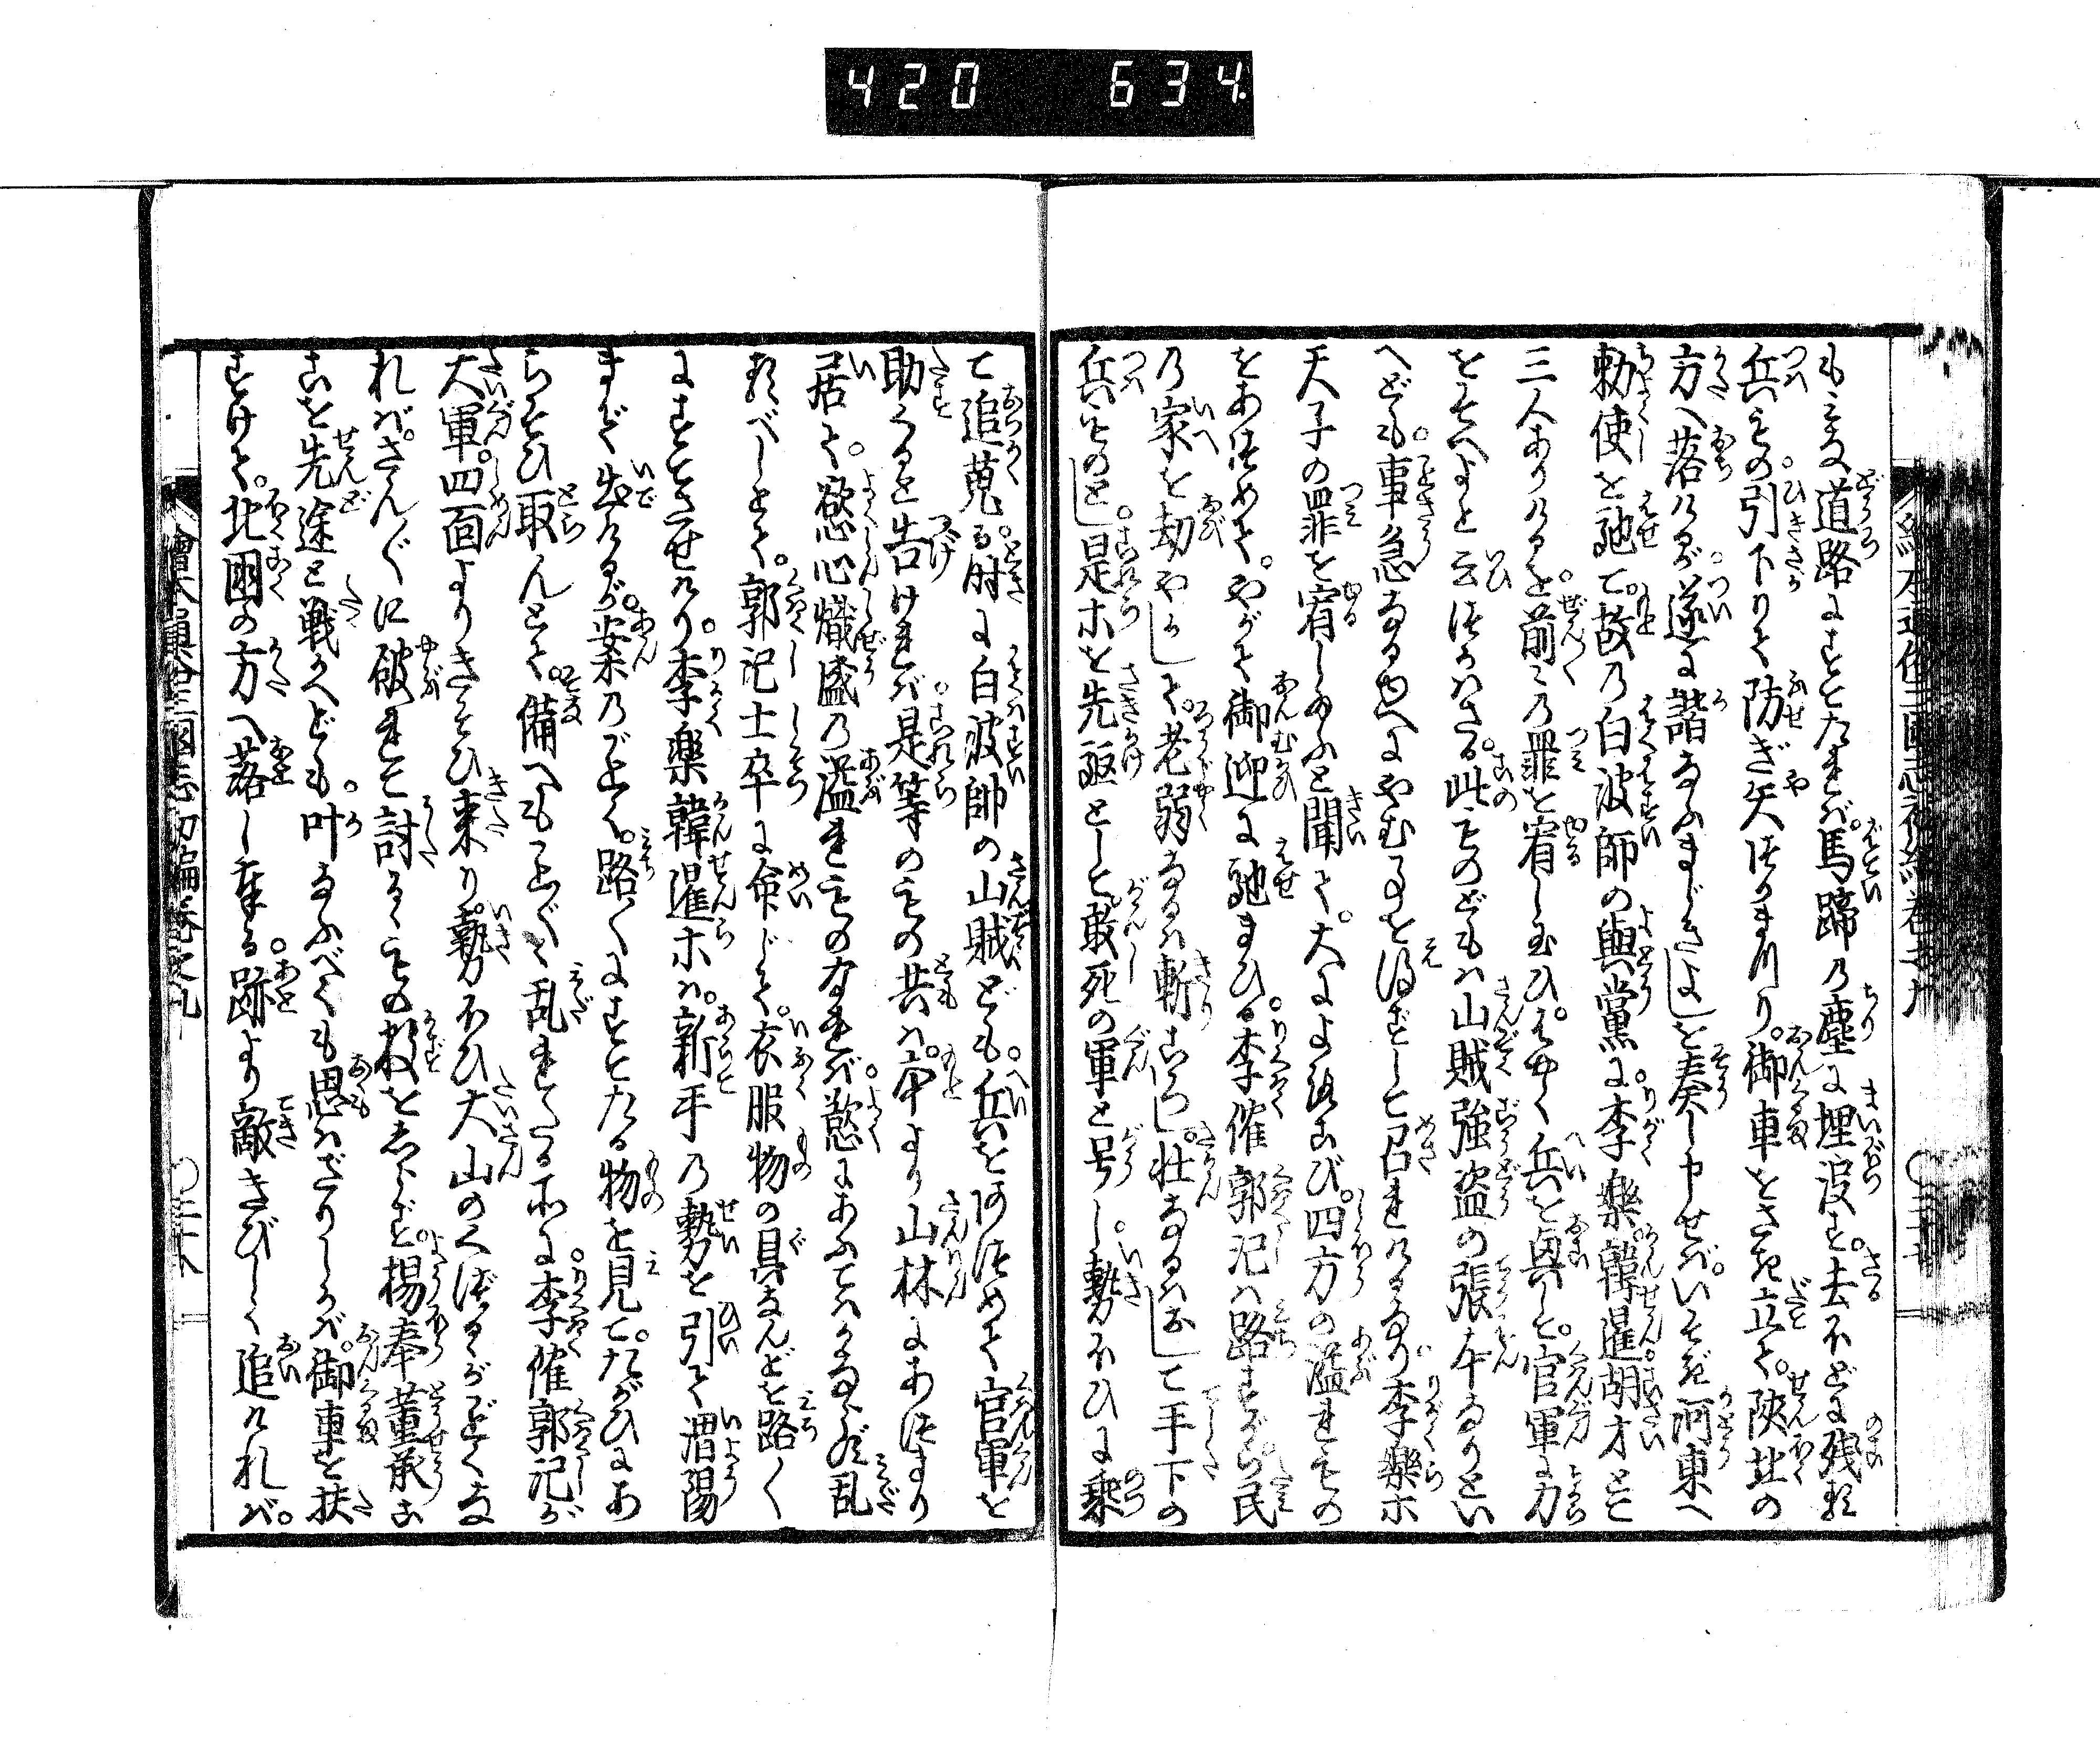 420 634
も、みな道路にすてたれば。馬蹄の塵に埋没す。去ほどに残る
兵もの。引下りて防ぎ矢つかまつり。御車をさき立て。陝北の
方へ落けるが。遂に諧なふまじきよしを奏し申せば。いそぎ河東へ
勅使を馳て。故の白波師の與黨に。李樂。韓暹。胡才とて
三人ありけるを。前々の罪を宥し玉ひ。はやく兵を與して。官軍に力
をそへよと云つかはさる。此ものどもは山賊強盗の張本なりとい
へども。事急なるゆへにやむことを得ずして召れけるなり。李樂等
天子の罪を宥し給ふと聞て。大によろこび。四方の溢れもの
をあつめて。やがて御迎に馳まひる。李傕郭汜は路すがら。民
の家を劫やかして。老弱なるは斬ころし。壮なるは立て手下の
兵ものとし。是等を先駆として敢死の軍と号し。勢ひに乗
て追蒐る。時に白波帥の山賊ども。兵をあつめて官軍を
助くると告ければ。是等のもの共は。本より山林にあつまり
居て。慾心熾盛の溢れものなれば。慾にあふてはかならず乱
るべしとて。郭汜士卒に命じて。衣服物の具なんどを路々
にすてさせけり。李樂韓暹等は。新手の勢を引て渭陽
まで出けるが。案のごとく。路々にすてたる物を見て。たがひにあ
らそひ取んとて。備へもことごとく乱れたる所に。李傕郭汜が
大軍。四面よりきそひ来り。勢ひ大山のくづるゝがごとくな
れば。さんざんに破れて討るゝもの数をしらず。楊奉董承こ
こを先途と戦かへども。叶なふべくも思はざりしかば。御車を扶
すけて。北国の方へ落し奉る。跡より敵きびしく追ければ。
繪本通俗三國志初編巻之九